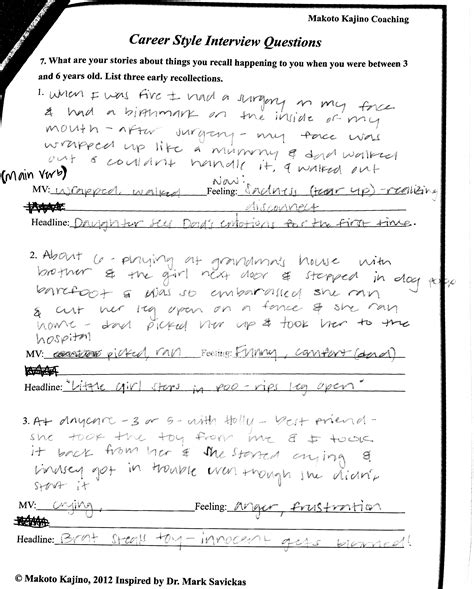 Makoto Kajino Coaching
Career Style Interview Questions
7. What are your stories about things you recall happening to you when you were between 3
and 6 years old. List three early recollections.
1. When I was five I had a surgery on my face
& had a birthmark on the inside of my
mouth - after surgery - my face was
wrapped up like a mummy & dad walked
out & couldn't handle it, & walked out
(main verb)
Now:
MV: wrapped, walked Feeling: Sadness (tear up) - realizing
disconnect
Headline: Daughter sees Dad's emotions for the first time.
2. About 6 - playing at grandma's house with
brother & the girl next door & stepped in dog
barefoot & was so embarassed she ran
& cut her leg open on a fence & she ran
home - dad picked her up & took her to the
hospital
MV: picked, ran Feeling: Funny, comfort (dad)
Headline: "Little Girl steps in poo - rips leg open"
3. At daycare - 3 or 5 - with Holly - best friend -
she took the toy from me & I took
it back from her & she started crying &
Lindsey got in trouble even though she didn't
start it
MV: crying, Feeling: anger, frustration
Headline: Brat steals toy - innocent gets blamed!
© Makoto Kajino, 2012 Inspired by Dr. Mark Savickas